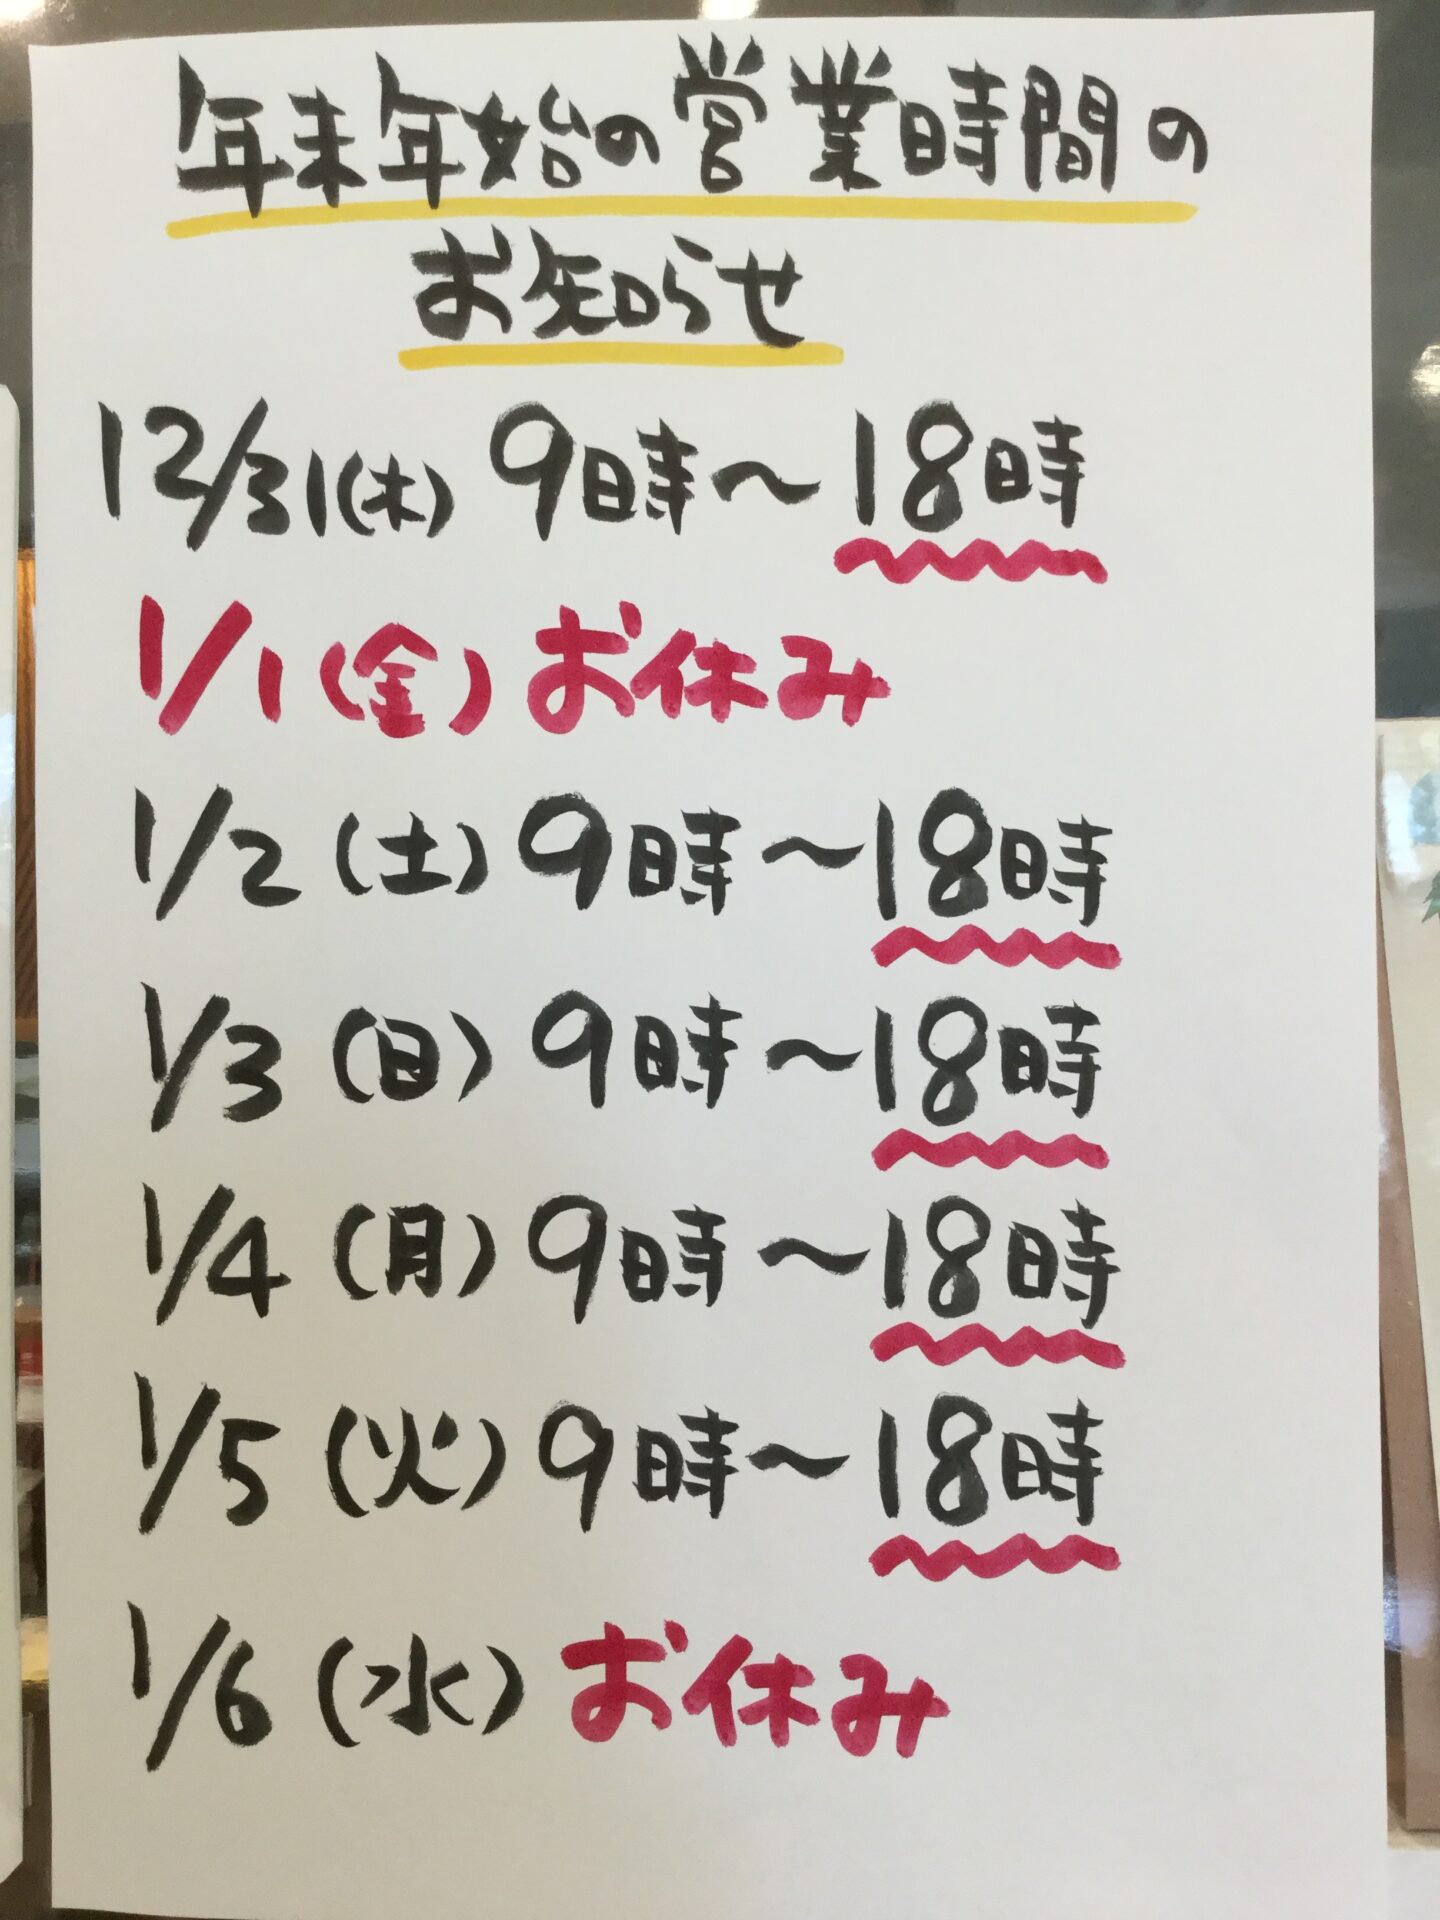 年末年始の営業時間の
お知らせ
12/31(木) 9時～18時
1/1(金) お休み
1/2(土) 9時～18時
1/3(日) 9時～18時
1/4(月) 9時～18時
1/5(火) 9時～18時
1/6(水) お休み